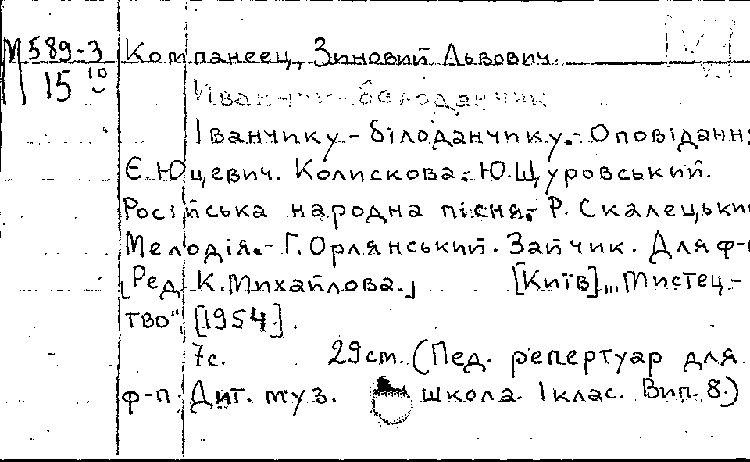 М 589-3 Компанеец, Зиновий Львович.
15 10
Іванчику-білоданчику.- Оповідання
Є.Юцевич. Колискова.-Ю.Щуровський.
Російська народна пісня.- Р. Скалецький
Мелодія.- Г.Орлянський. Зайчик. Для ф-п
[Ред. К.Михайлова.] [Київ], „Мистец-
тво", [1954].
7с. 29cm. (Пед. репертуар для
ф-п. Дит. муз. школа. 1 клас. Вип. 8.)